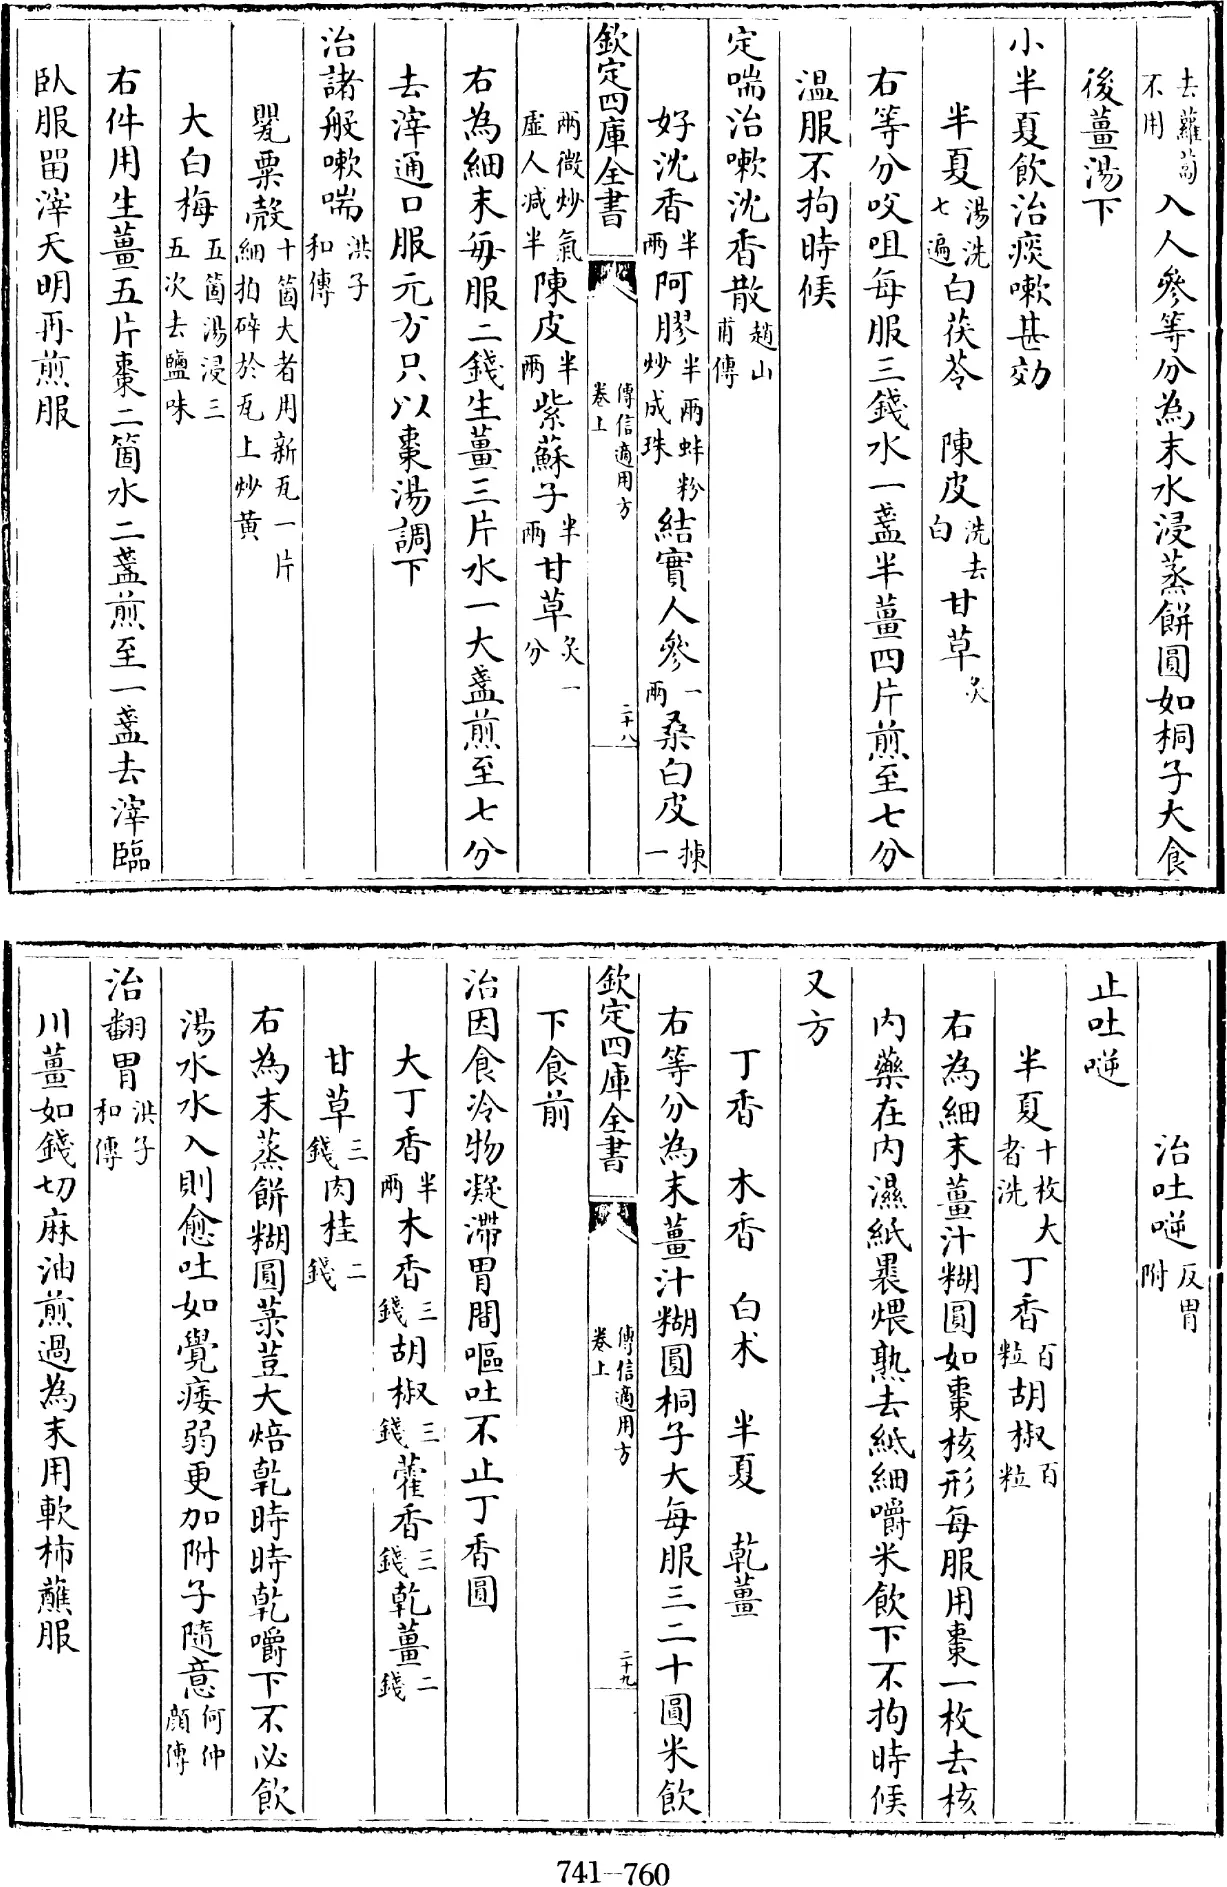 去蘿蔔不用入人參等分為末水浸蒸餅圓如桐子大食
後薑湯下
小半夏飲治痰嗽甚効
半夏湯洗七遍白茯苓　陳皮洗去白甘草炙
右等分㕮咀每服三錢水一盞半薑四片煎至七分
温服不拘時候
定喘治嗽沈香散趙山甫傳
好沈香半兩阿膠半兩蚌粉炒成珠結實人參一兩桑白皮揀一
欽定四庫全書　傳信適用方卷上　二十八
兩微炒氣虛人减半陳皮半兩紫蘇子半兩甘草炙一分
右為細末每服二錢生薑三片水一大盞煎至七分
去滓通口服元方只以棗湯調下
治諸般嗽喘洪子和傳
甖粟殻十箇大者用新瓦一片細拍碎於瓦上炒黄
大白梅五箇湯浸三五次去鹽味
右件用生薑五片棗二箇水二盞煎至一盞去滓臨
臥服留滓天明再煎服
治吐逆反胃附
止吐逆
半夏十枚大者洗丁香百粒胡椒百粒
右為細末薑汁糊圓如棗核形每服用棗一枚去核
内藥在内濕紙裹煨熟去紙細嚼米飲下不拘時候
又方
丁香　木香　白术　半夏　乾薑
右等分為末薑汁糊圓桐子大每服三二十圓米飲
欽定四庫全書　傳信適用方卷上　二十九
下食前
治因食冷物凝滯胃間嘔吐不止丁香圓
大丁香半兩木香三錢胡椒三錢藿香三錢乾薑二錢
甘草三錢肉桂二錢
右為末蒸餅糊圓菉荳大焙乾時時乾嚼下不必飲
湯水水入則愈吐如覺痿弱更加附子隨意何仲顏傳
治翻胃洪子和傳
川薑如錢切麻油煎過為末用軟柿蘸服
741—760